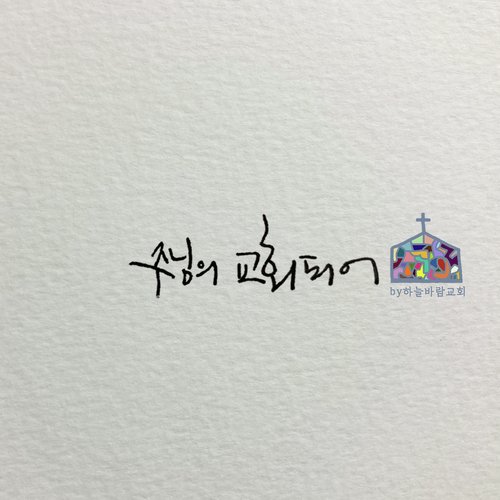 주님의 교회 되어
by하늘바람교회